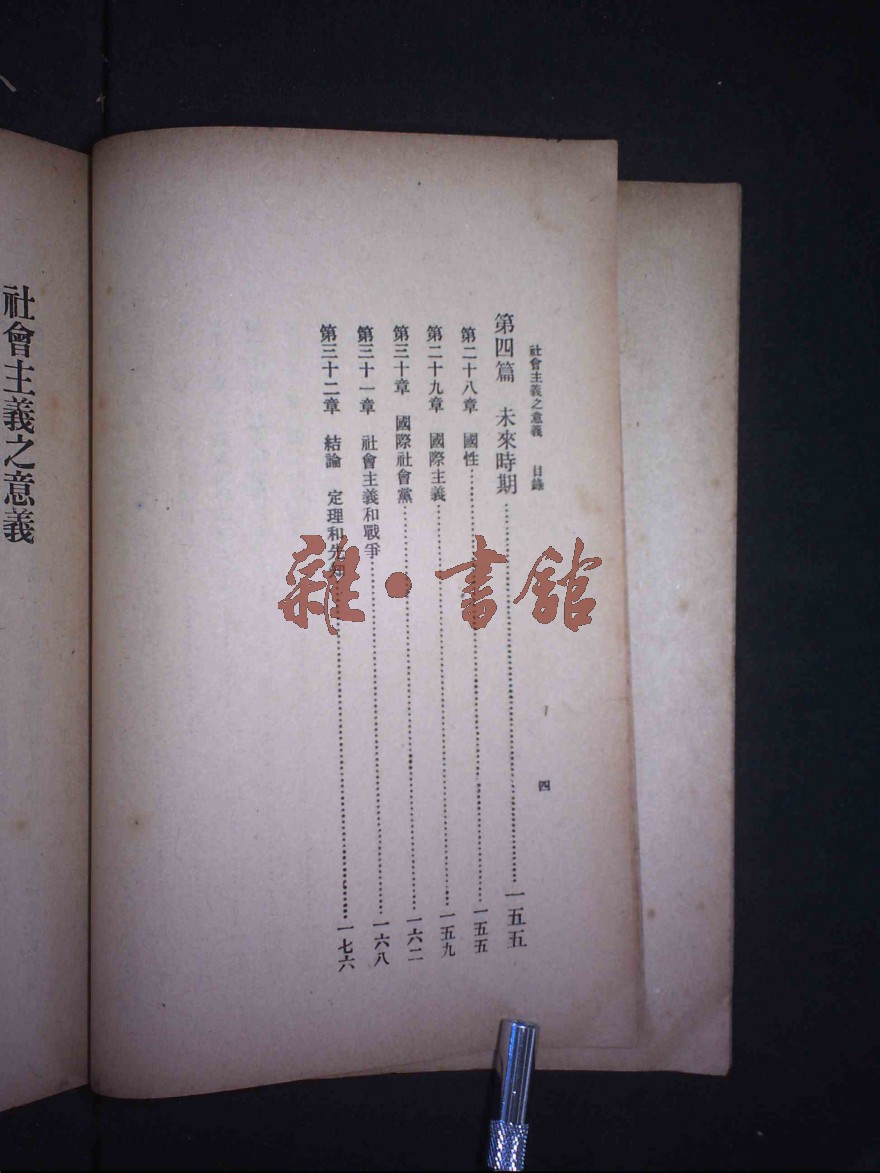 社會主義之意義 目錄 四
第四篇 未來時期 一五五
第二十八章 國性 一五五
第二十九章 國際主義 一五九
第三十章 國際社會黨 一六二
第三十一章 社會主義和戰爭 一六八
第三十二章 結論 定理和先知 一七六
社會主義之意義
雜·書館